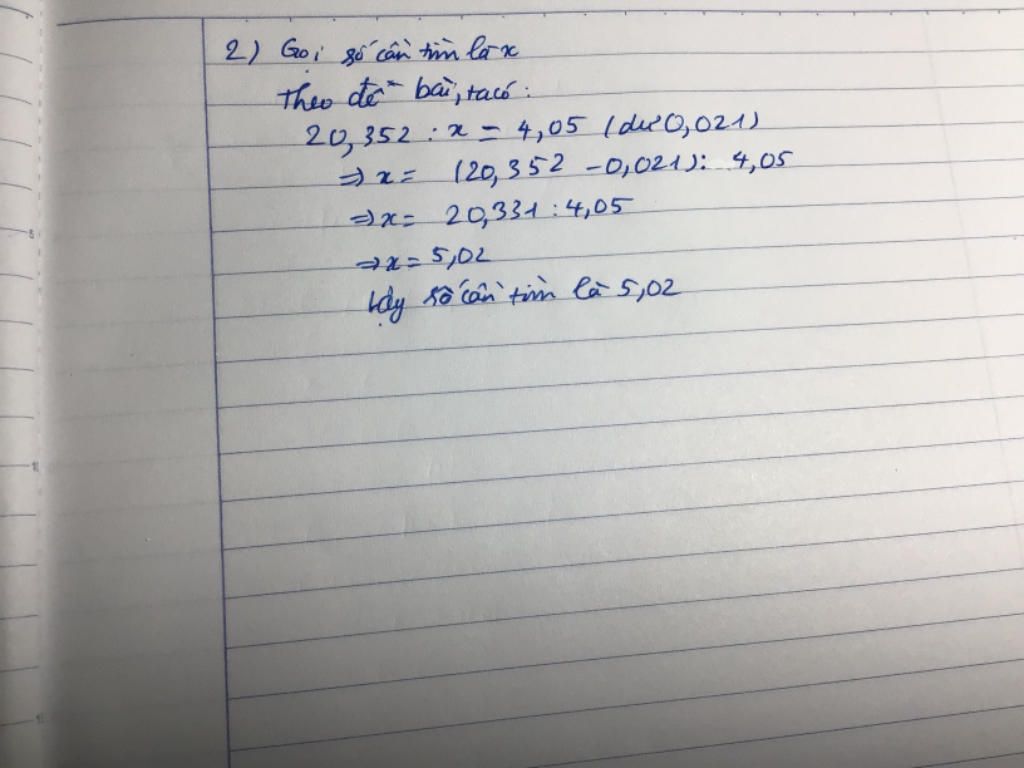 2) Gọi số cần tìm là x
Theo đề bài, ta có :
20,352 : x = 4,05 (dư 0,021)
⇒ x = (20,352 - 0,021) : 4,05
⇒ x = 20,331 : 4,05
⇒ x = 5,02
Vậy số cần tìm là 5,02